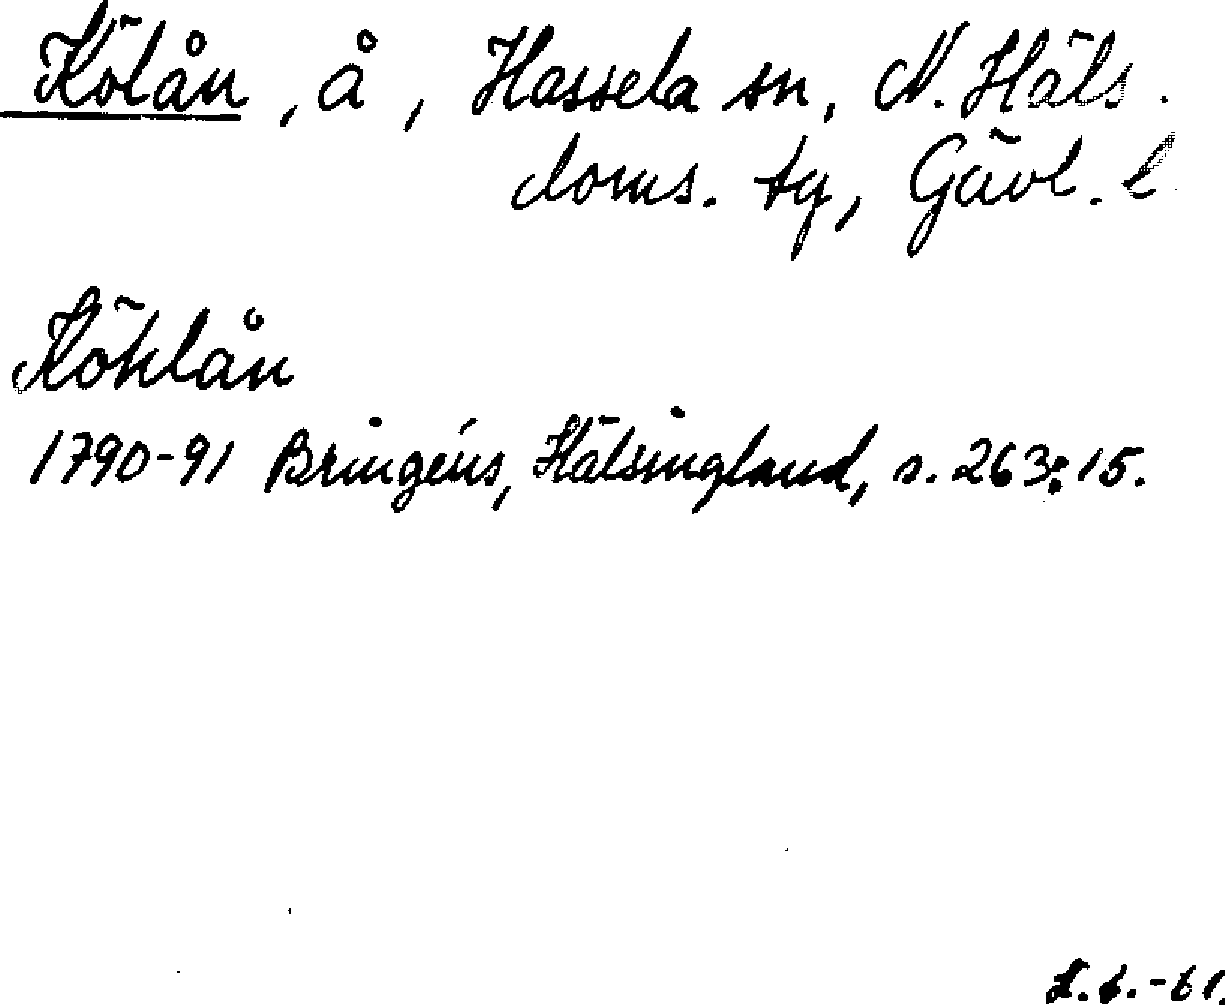 Kölån, å, Hassela sn, N. Häls.
doms. tg, Gävl. l
Köhlån
1790-91 Bringéus, Hälsingland, s. 263:15.